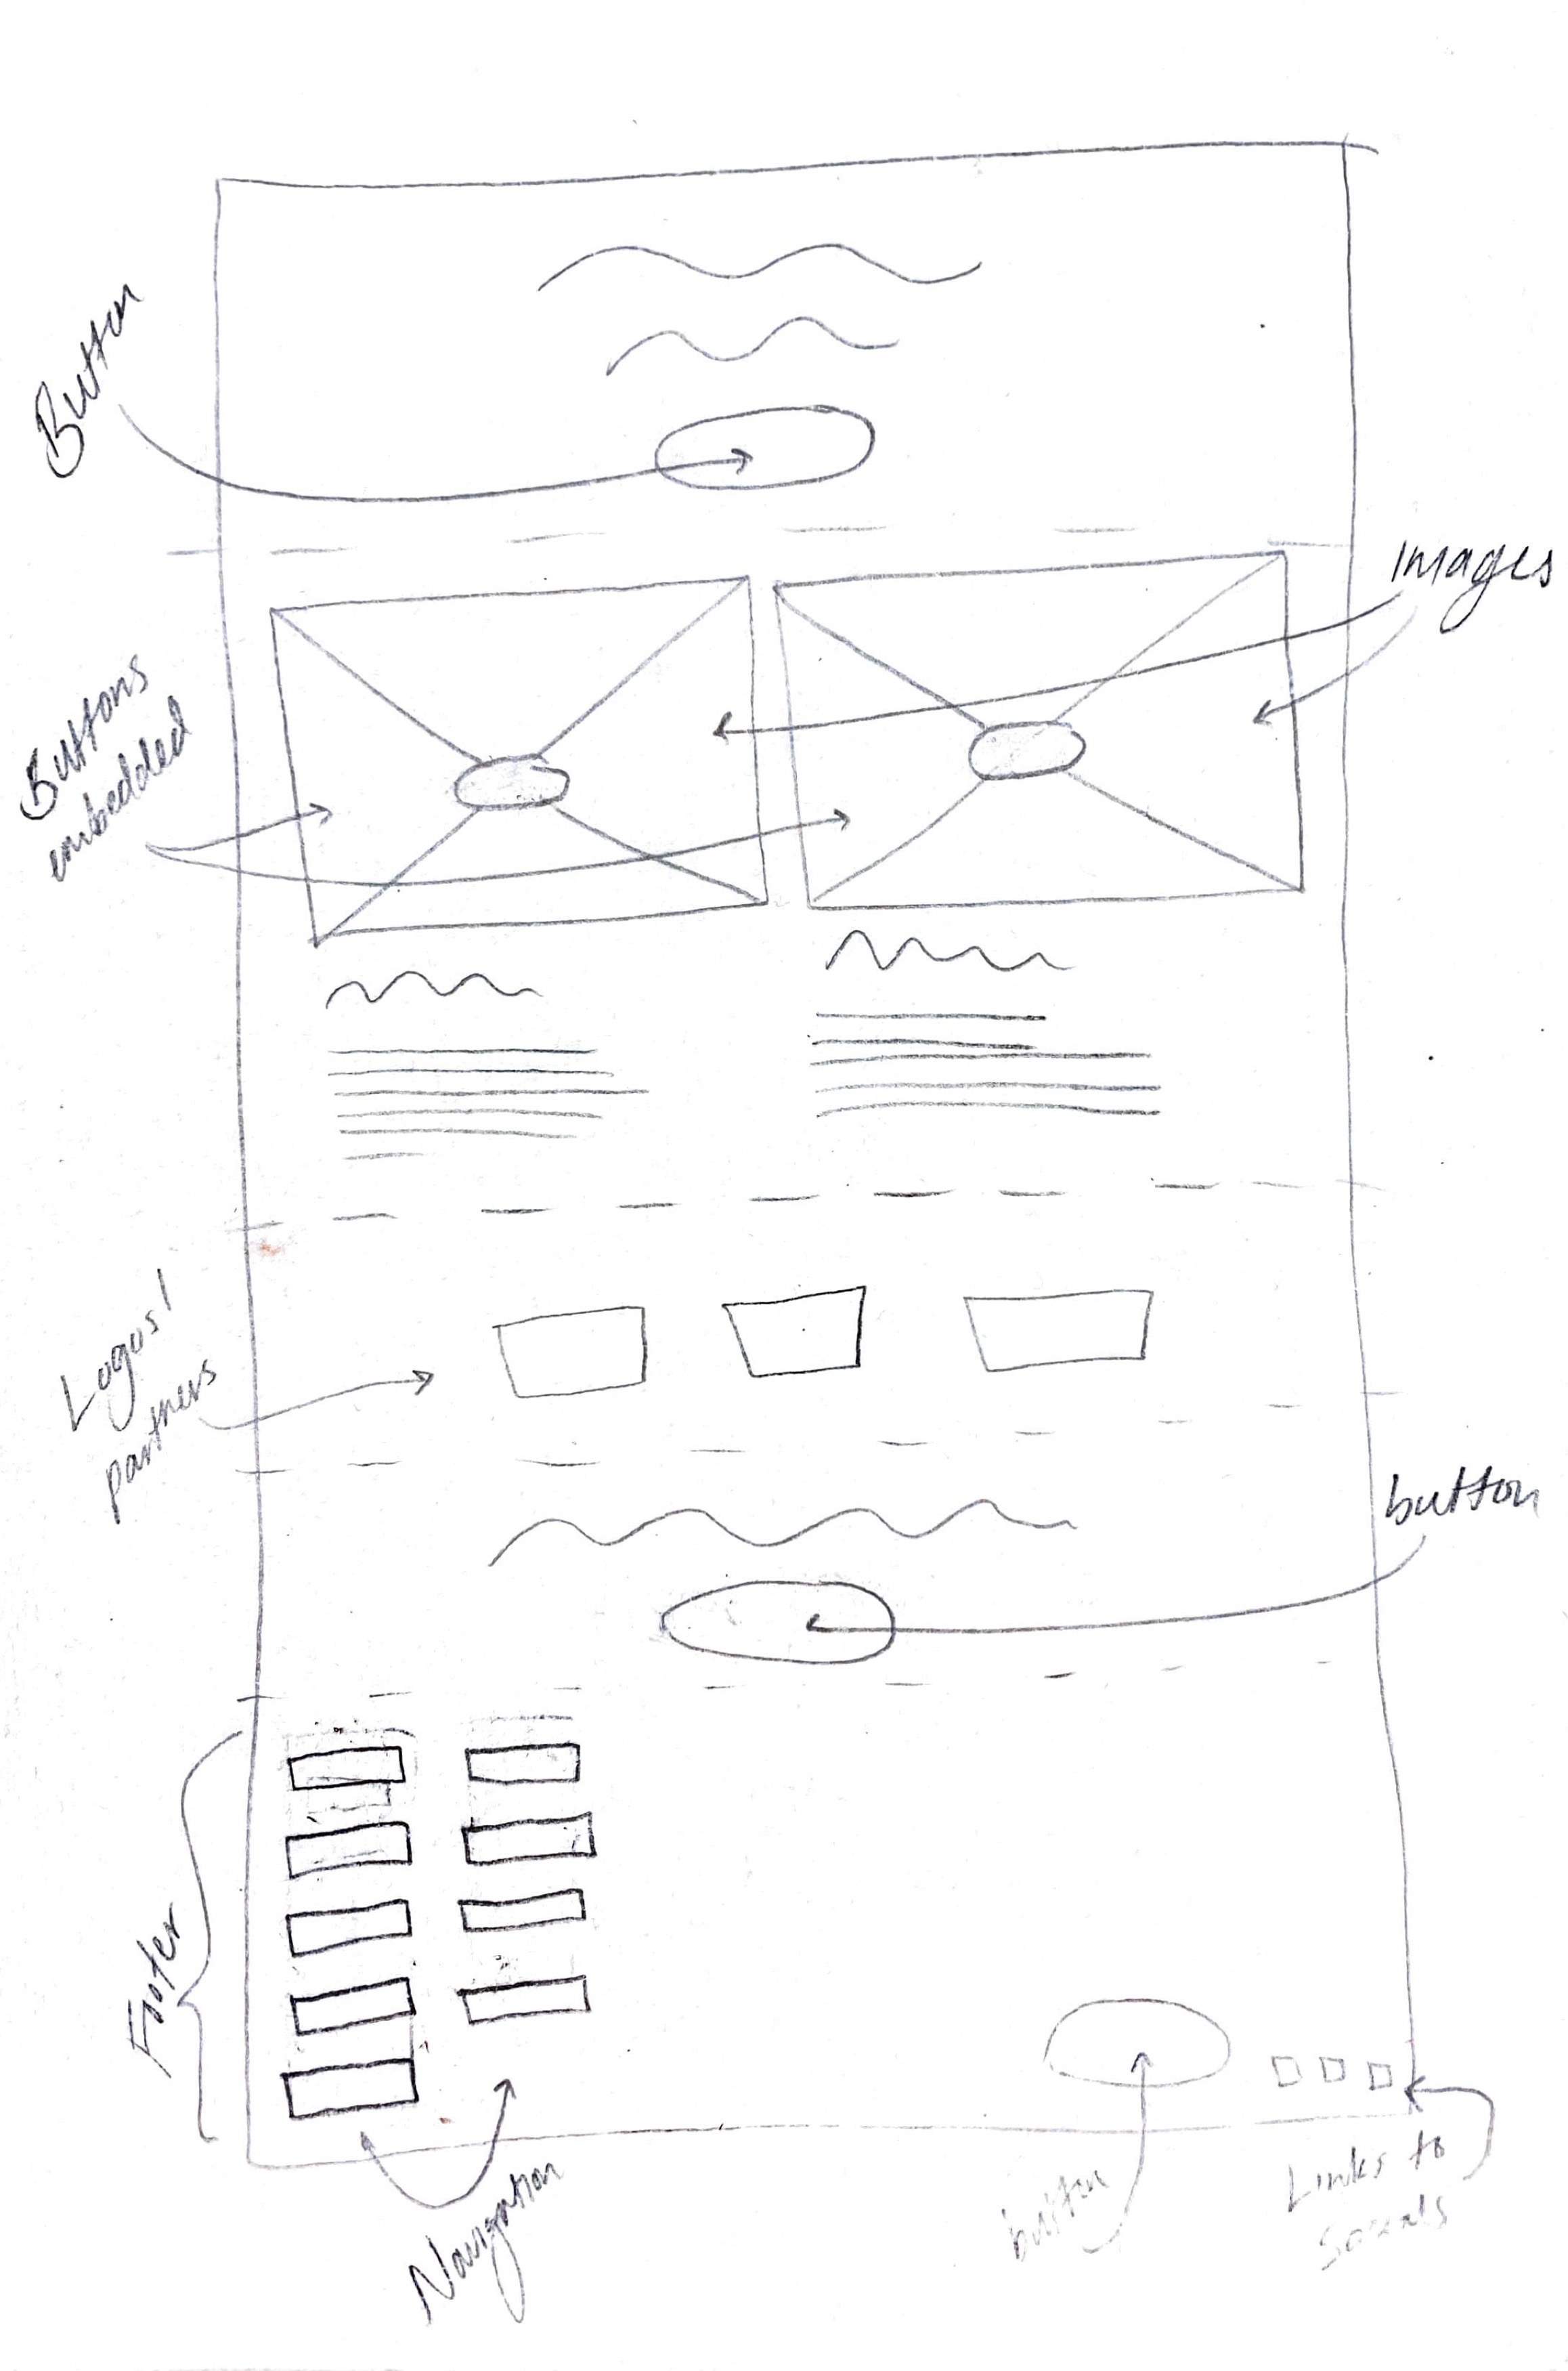 Button
images
Buttons
embedded
Logos/
partners
button
Footer
Navigation
button
Links to
Socials